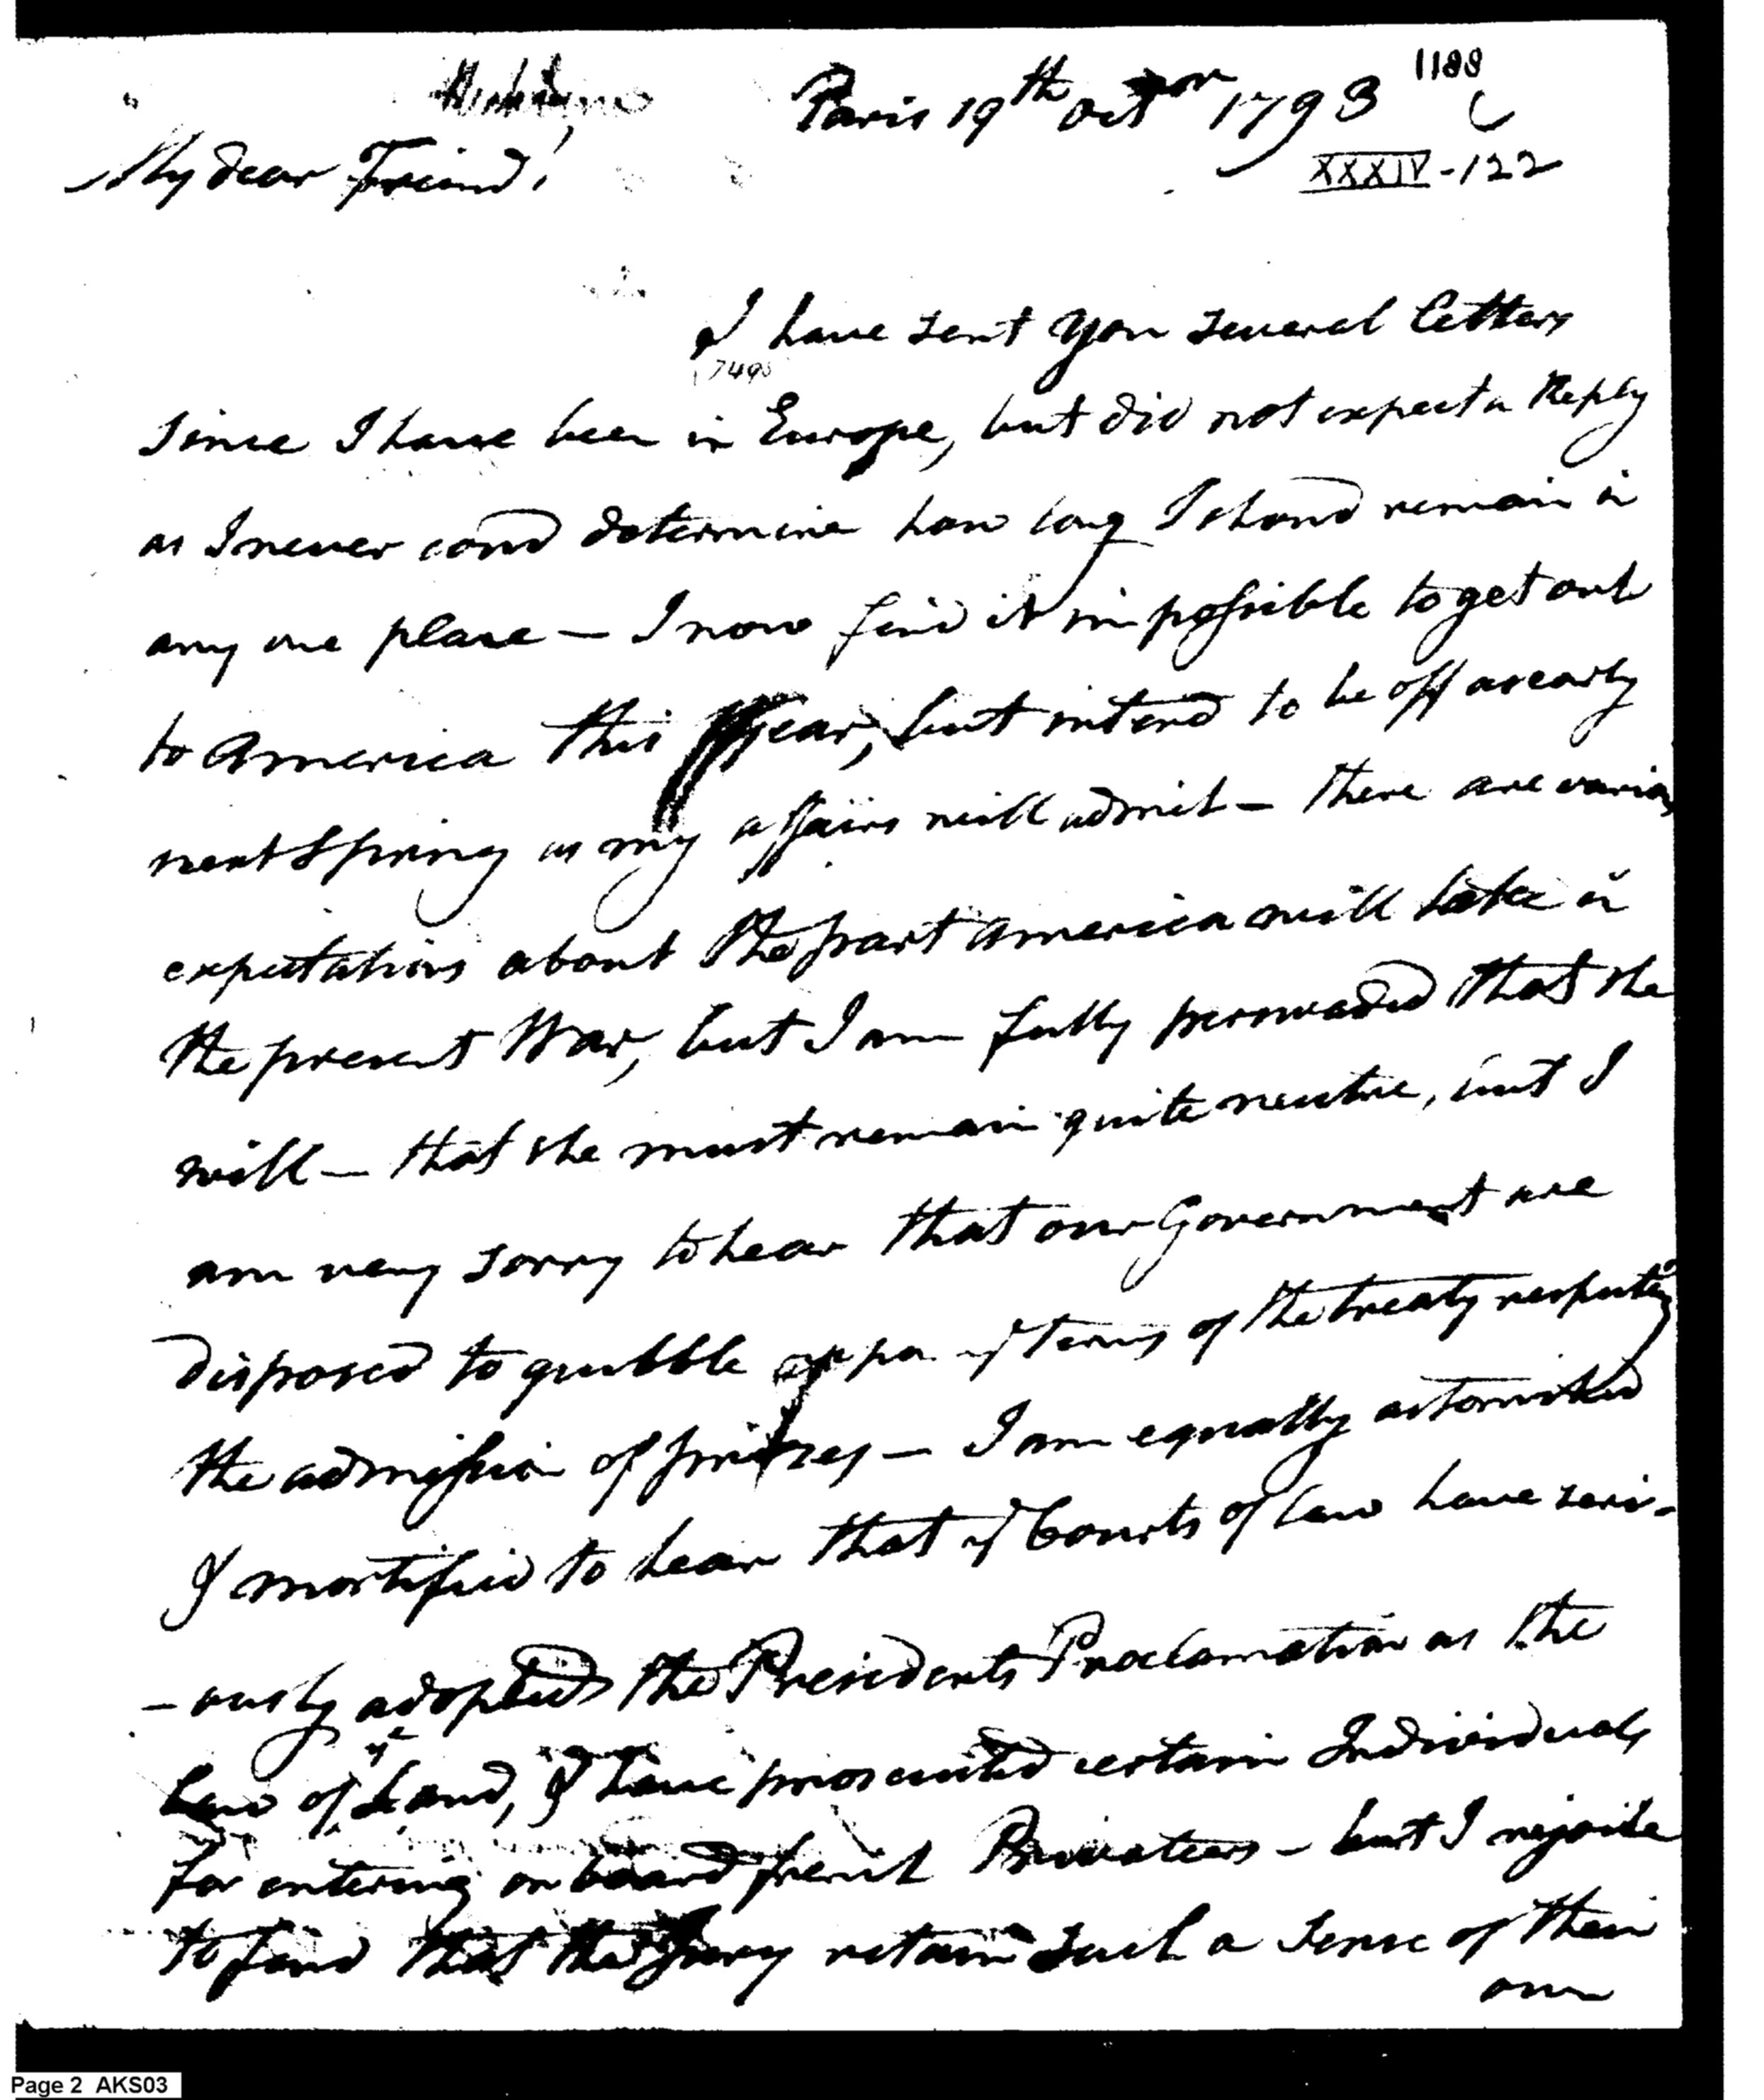 Paris 19th Octor 1793
1188
XXXIV-122
My dear Friend,
I have sent you several letters
7490
since I have been in Europe, but did not expect a Reply
as I never coud determine how long I shoud remain in
any one place — I now find it impossible to get out
to America this Year, but intend to be off as early
next Spring as my affairs will admit — there are various
expectations about the part America will take in
the present War, but I am fully perswaded that she
will — that she must remain quite neutre, but I
am very sorry to hear that our Government are
disposed to quibble uppon ye terms of the treaty respecting
the admission of prizes — I am equally astonished
& mortified to hear that ye Courts of law have seri-
-ously adopted the Presidents Proclamation as the
Law of ye Land, & have prosecuted certain Individuals
for entering on board french Privateers - but I rejoice
to find that the Jury retain such a sense of their
own
Page 2 AKS03